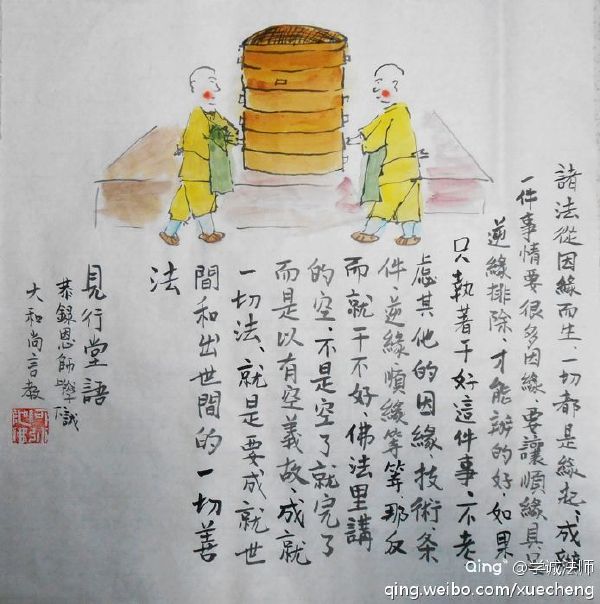 諸法從因緣而生、一切都是緣起、成辦
一件事情要很多因緣、要讓順緣具足
逆緣排除、才能辦的好、如果
只執著于好這件事、不考
慮其他的因緣技術、條
件、逆緣順緣等等、那反
而就干不好、佛法里講
的空、不是空了就完了
而是以有空義故、成就
一切法、就是要成就世
間和出世間的一切善
法
見行堂語
恭錄恩師學誠
大和尚言教
Qing @学诚法师
qing.weibo.com/xuecheng